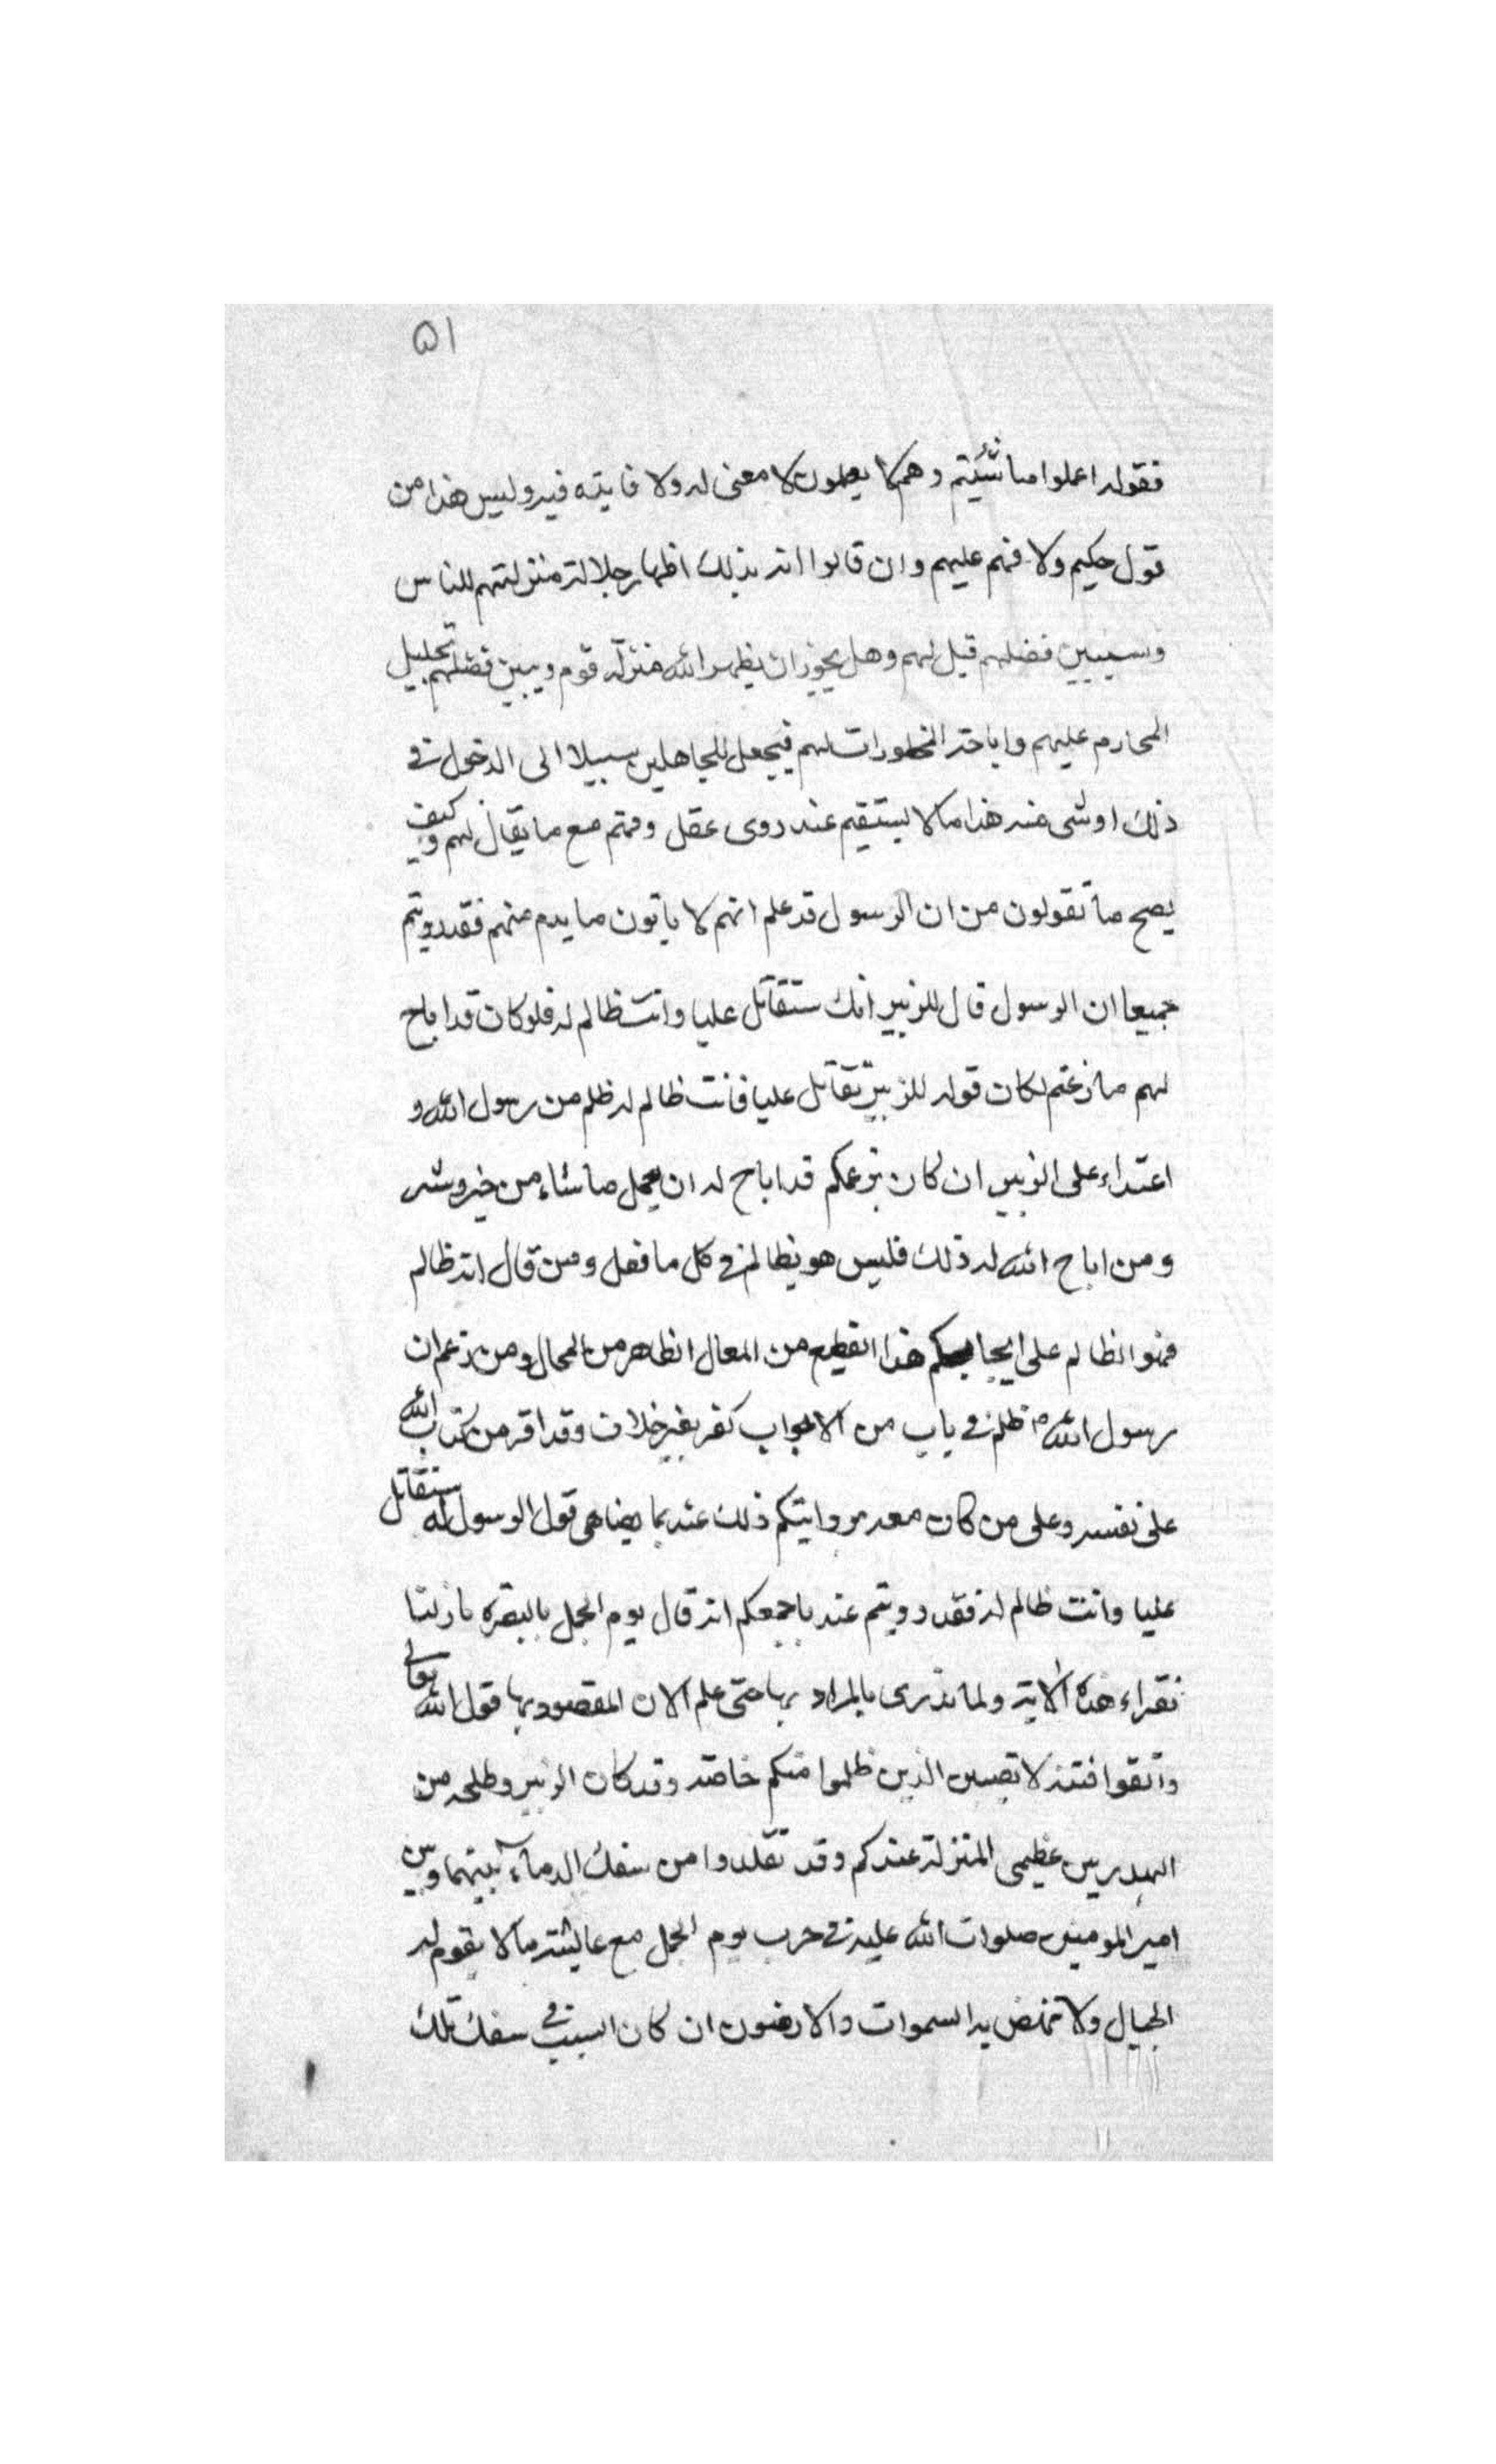 ۵۱
فقوله اعملوا ما شئتم وهم لا يعملون لا معنى له ولا فايدة فيه وليس هذا من
قول حكيم ولا فهم عليهم وان قالوا انه بذلك اظهار جلالة منزلتهم للناس
وسيبين فضلهم قيل لهم وهل يجوز ان يظهر الله منزلة قوم ويبين فضلهم بتحليل
المحارم عليهم واباحة المحظورات لهم فيجعل للجاهلين سبيلا الى الدخول في
ذلك او شى منه هذا ما لا يستقيم عند ذوى عقل وفهم مع ما يقال لهم وكيف
يصح ما تقولون من ان الرسول قد علم انهم لا ياتون ما يذم منهم فقد رويتم
جميعا ان الرسول قال للزبير انك ستقاتل عليا وانت ظالم له فلو كان قد اباح
لهم ما زعمتم لكان قوله للزبير تقاتل عليا فانت ظالم له ظلم من رسول الله و
اعتداء على الزبير ان كان بزعمكم قد اباح له ان يعمل ما شاء من خير وشر
ومن اباح الله له ذلك فليس هو بظالم في كل ما فعل ومن قال انه ظالم
فهو الظالم على ايجابكم هذا الفظيع من المقال الظاهر من المحال ومن زعم ان
رسول الله ص ظلم في باب من الابواب كفر بغير خلاف وقد اقر من كتاب الله
على نفسه وعلى من كان معه بروايتكم ذلك عنه بما يضاهى قول الرسول له ستقاتل
عليا وانت ظالم له فقد رويتم عنه باجمعكم انه قال يوم الجمل بالبصرة ما زلنا
نقراء هذه الاية ولما ندرى بالمراد بها حتى علم الان المقصود بها قول الله تعالى
واتقوا فتنة لا تصيبن الذين ظلموا منكم خاصة وقد كان الزبير وطلحه من
البدريين عظيمى المنزلة عندكم وقد تقلدوا من سفك الدماء بينهما وبين
امير المومنين صلوات الله عليه في حرب يوم الجمل مع عايشة ما لا يقوم له
الجبال ولا تنهض به السموات والارضون ان كان السبب في سفك تلك